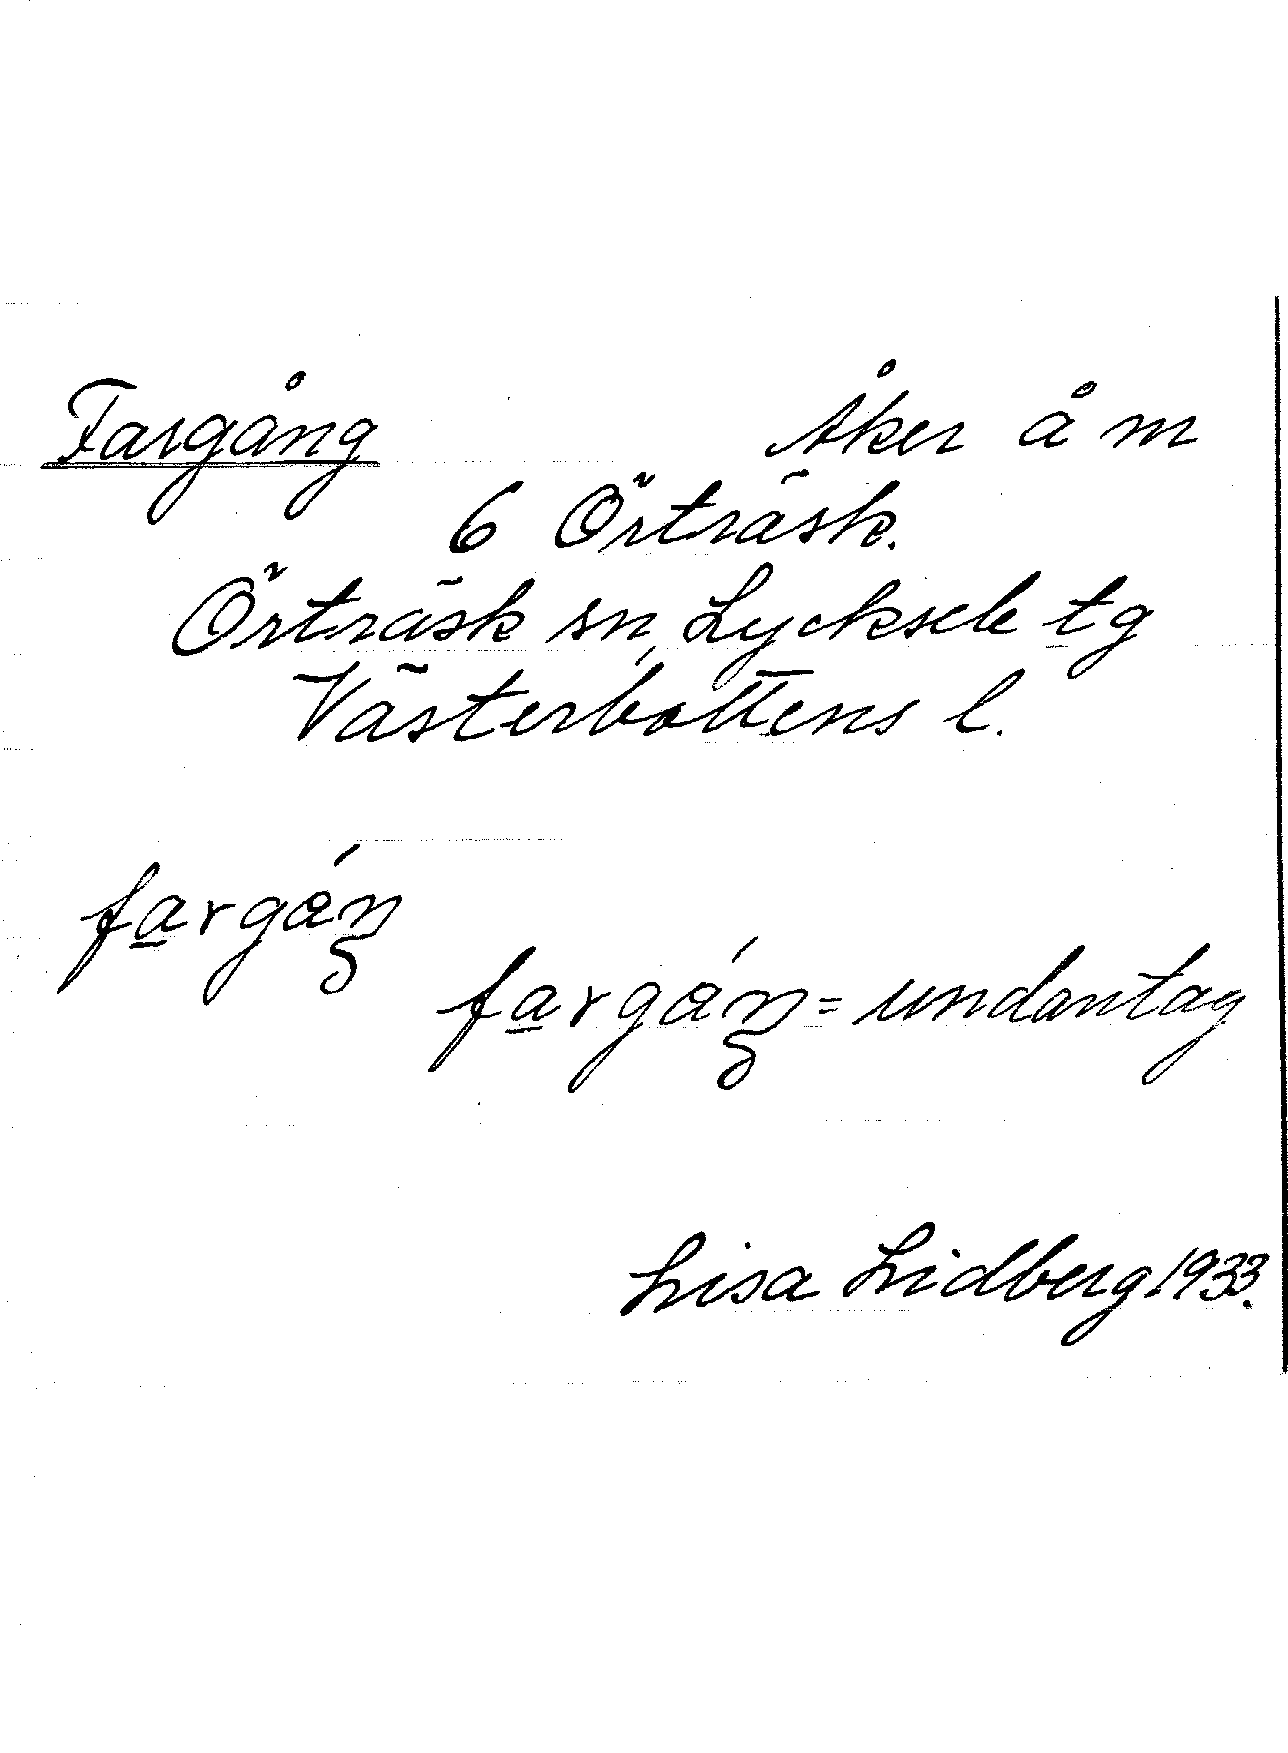 Fargång Åker å m
6 Örträsk.
Örträsk sn, Lycksele tg
Västerbottens l.
fargáŋ
fargáŋ = undantag
Lisa Lidberg 1933.